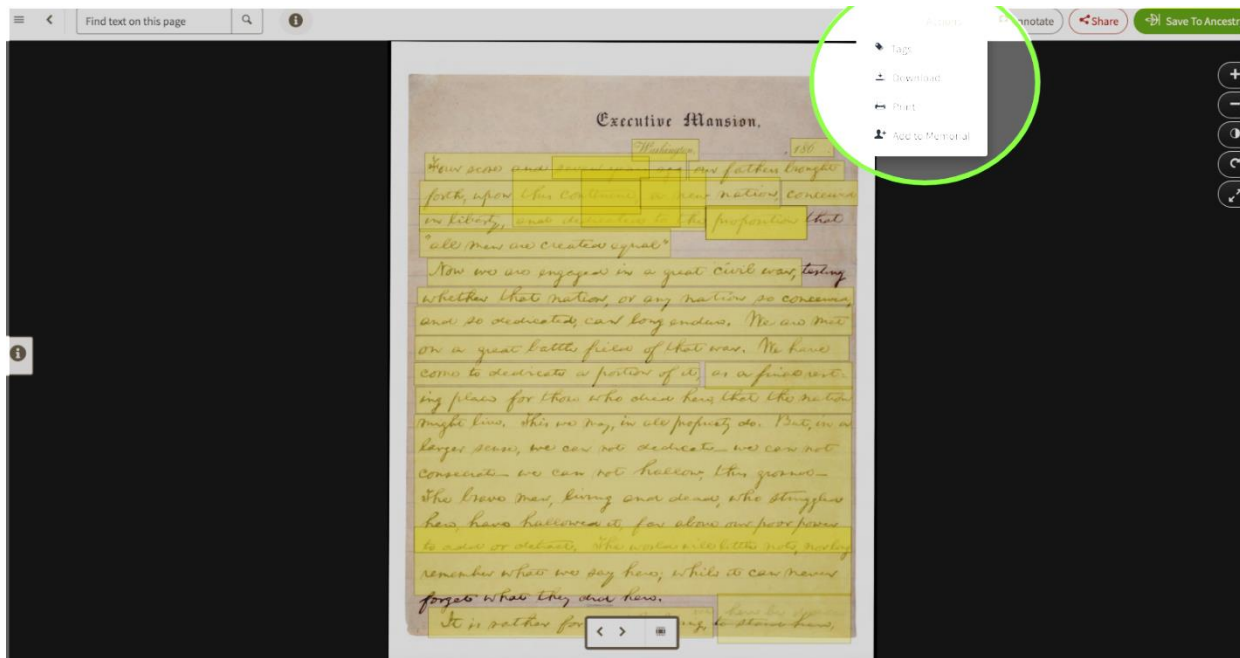 Find text on this page
nnotate
Share
Save To Ancestr
Tags
Download
Print
Add to Memorial
Executive Mansion,
Washington, , 186
Four score and seven years ago our fathers brought
forth, upon this continent, a new nation, conceived
in liberty, and dedicated to the proposition that
"all men are created equal"
Now we are engaged in a great civil war, testing
whether that nation, or any nation so conceived,
and so dedicated, can long endure. We are met
on a great battle field of that war. We have
come to dedicate a portion of it, as a final rest-
ing place for those who died here, that the nation
might live. This we may, in all propriety do. But, in a
larger sense, we can not dedicate — we can not
consecrate — we can not hallow, this ground —
The brave men, living and dead, who struggled
here, have hallowed it, far above our poor power
to add or detract. The world will little note, nor long
remember what we say here; while it can never
forget what they did here.
It is rather for to stand here,